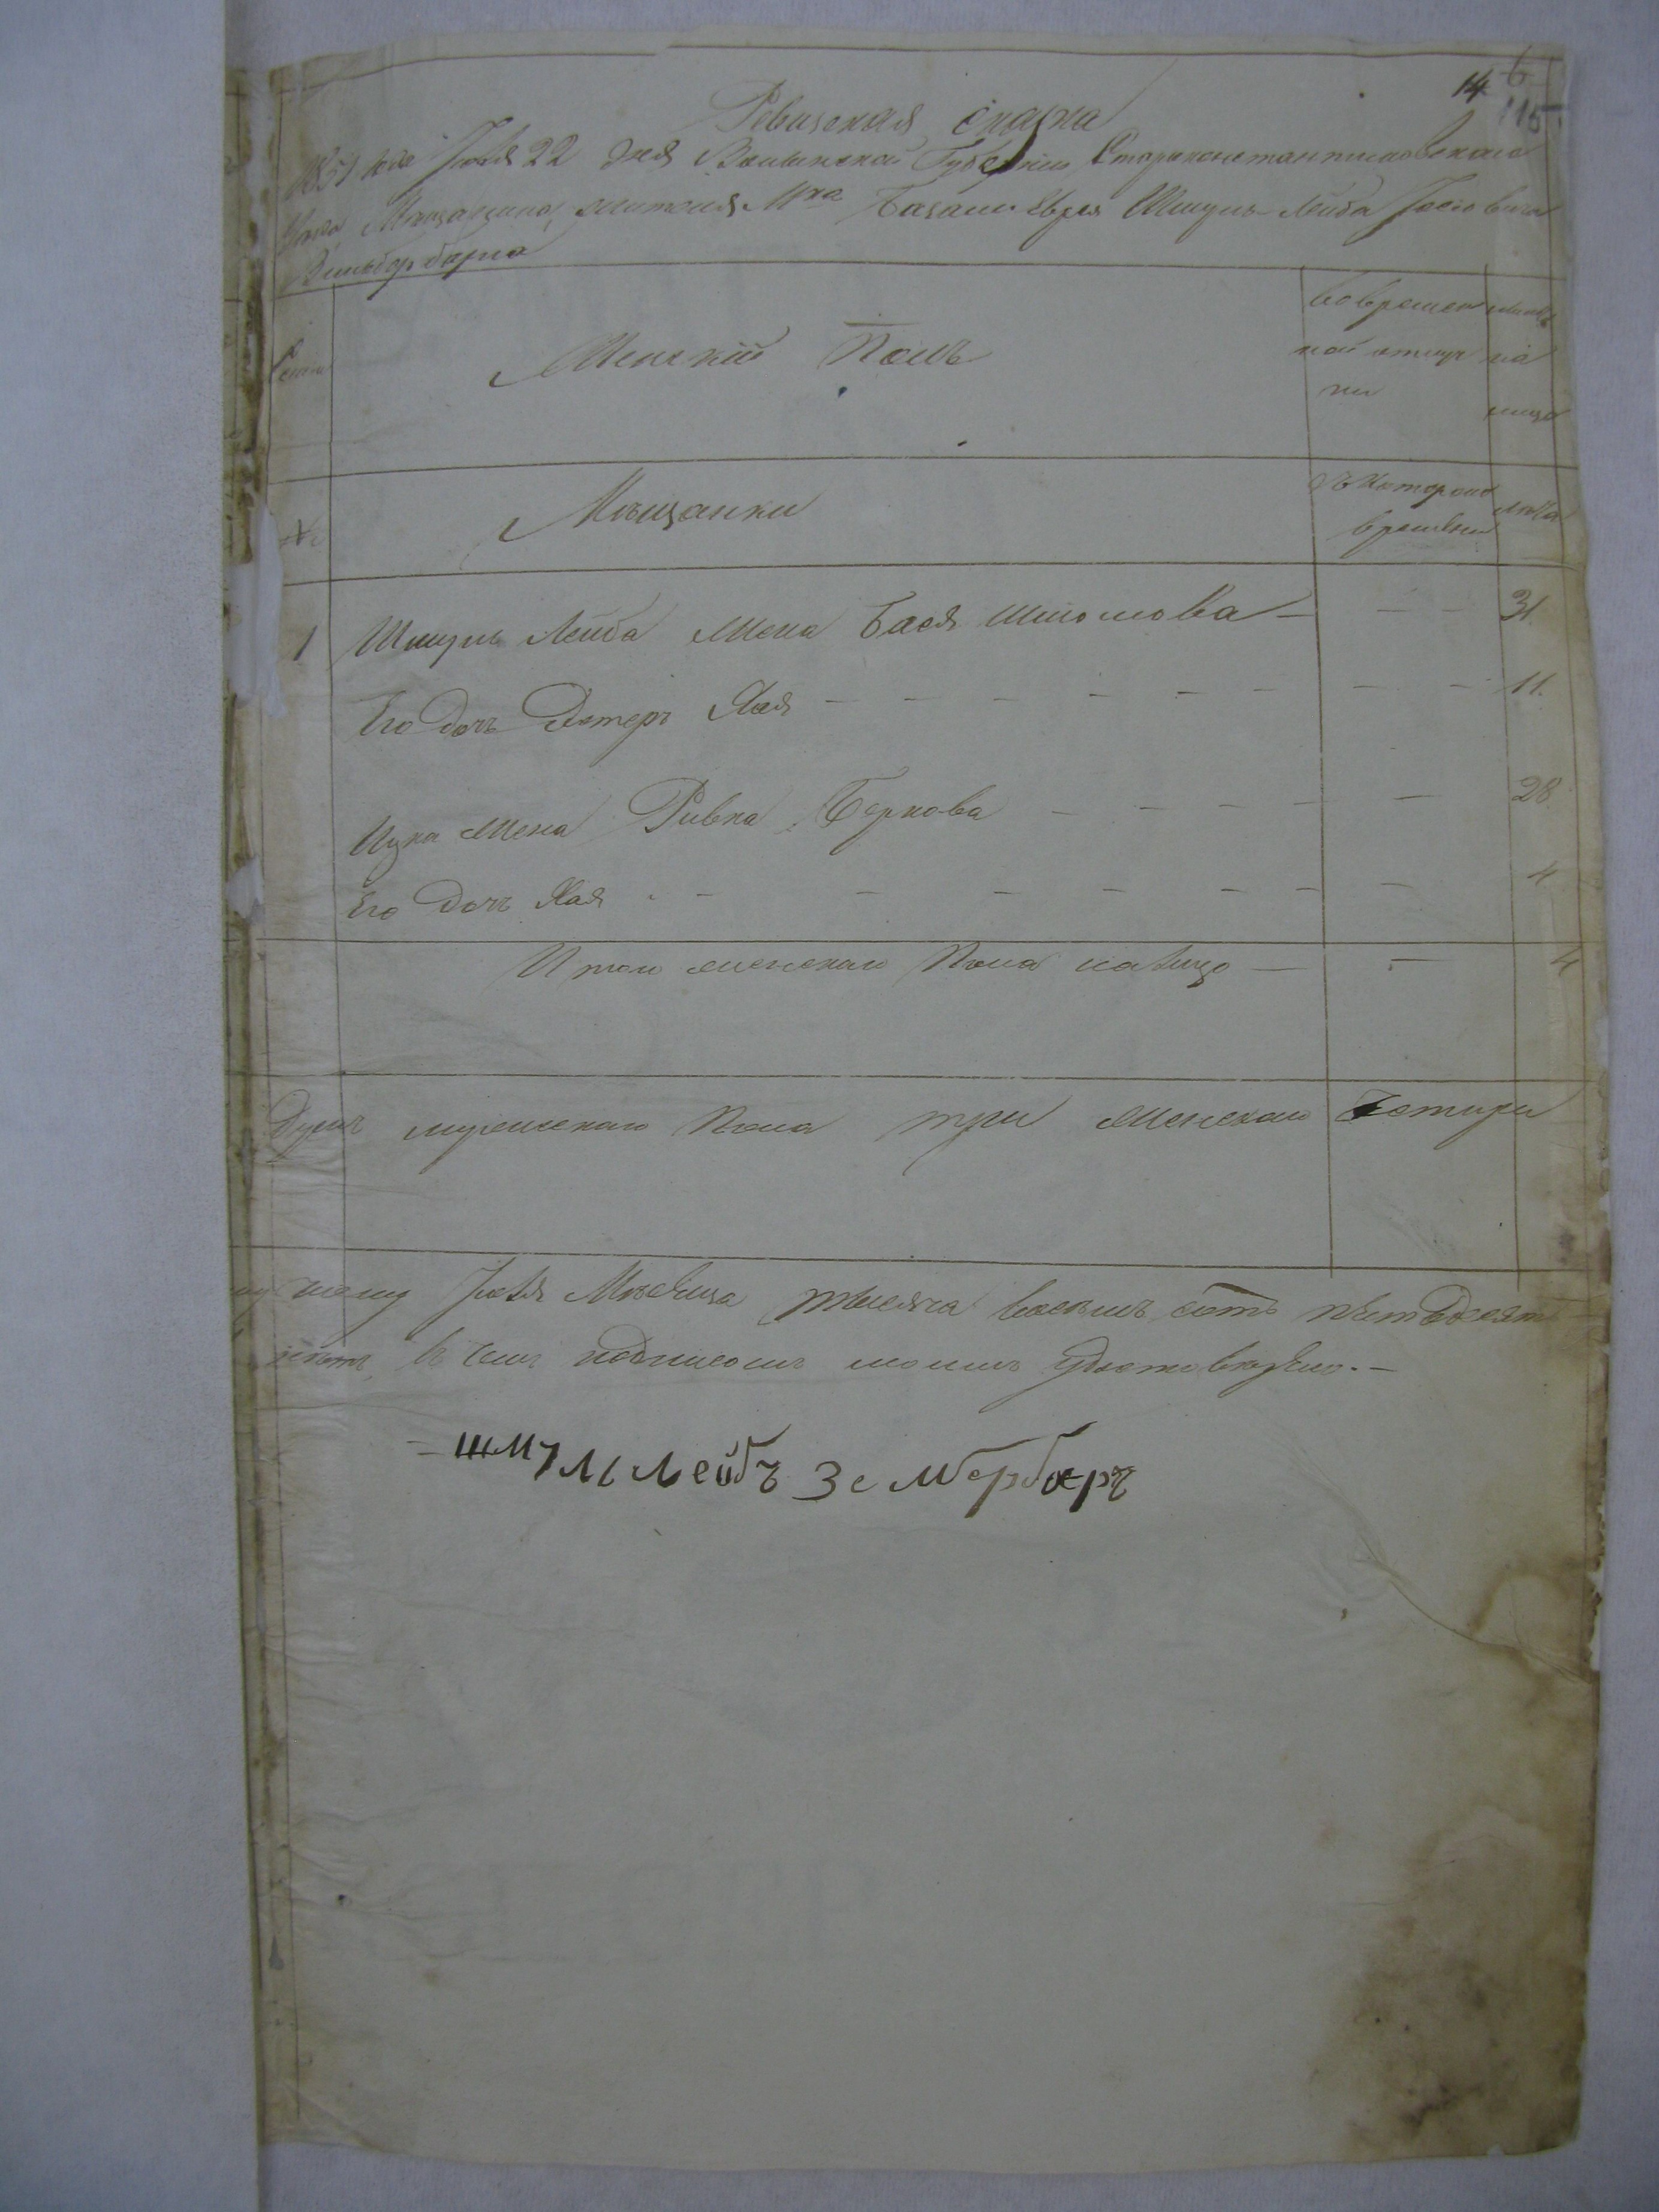 14 6
115
Ревизская сказка
1851 года Іюля 22 дня Волынской Губерніи Староконстантиновскаго
Мещанина жителя Мка Базаліи Еврея Шмуль-Лейба Іосіовича
Зильберберга
Женскій Полъ
Во времен ной отлуч ки
на лицо
Семьи
№
Мѣщанки
Съ котораго времени
Лѣта
1 Шмуль Лейба жена Бася Шломова — — — 31.
Его дочь Эстеръ Хая — — — — — — — — 11.
Ицка жена Ривка Беркова — — — — — 28
Его дочь Хая — — — — — — — 4
Итого женскаго Пола на лицо — — 4
Душъ мужескаго Пола три женскаго Четыри
Іюля Мѣсяца тысяча восемь сотъ пятьдесятъ
въ семъ подписомъ моимъ удостовѣряю. —
— шмуль лейбъ Зелберберъ